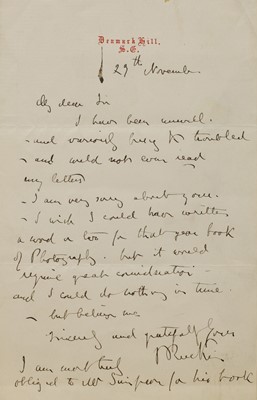 Denmark Hill,
S.E.
29th November
My dear Sir
I have been unwell
- and variously busy & troubled
- and could not even read
my letters
- I am very sorry about yours.
- I wish I could have written
a word or two for that year book
of Photography. but it would
require great consideration
and I could do nothing in time.
- but believe me
Sincerely and gratefully yours
J Ruskin
I am most truly
obliged to Mr Simpson for his book